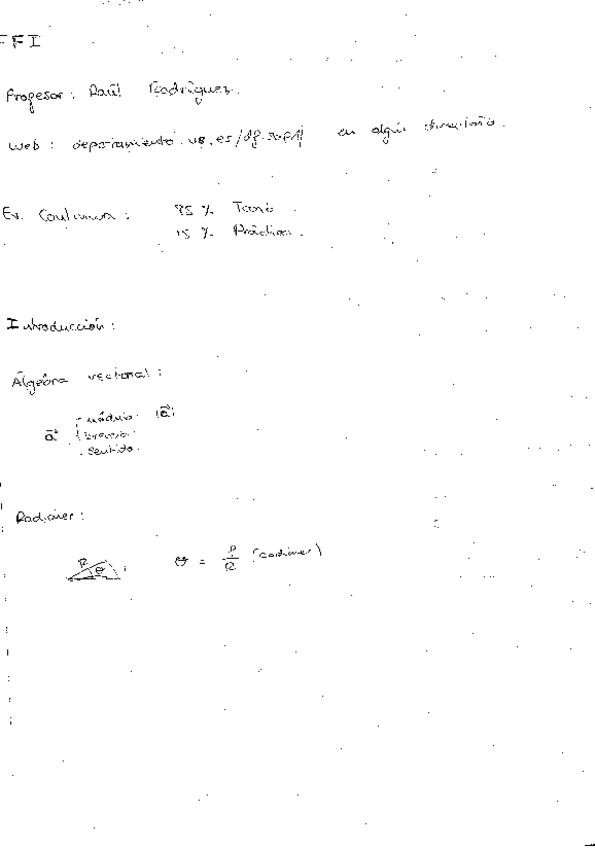 FFI
Profesor: Raúl Rodríguez.
Web: departamento.us.es/ en algún
Ev. Continua: 85 % Teoría.
15 % Práctica.
Introducción:
Álgebra vectorial:
módulo |a⃗|
a⃗
sentido.
Radianes:
R θ θ = P/R (radianes)